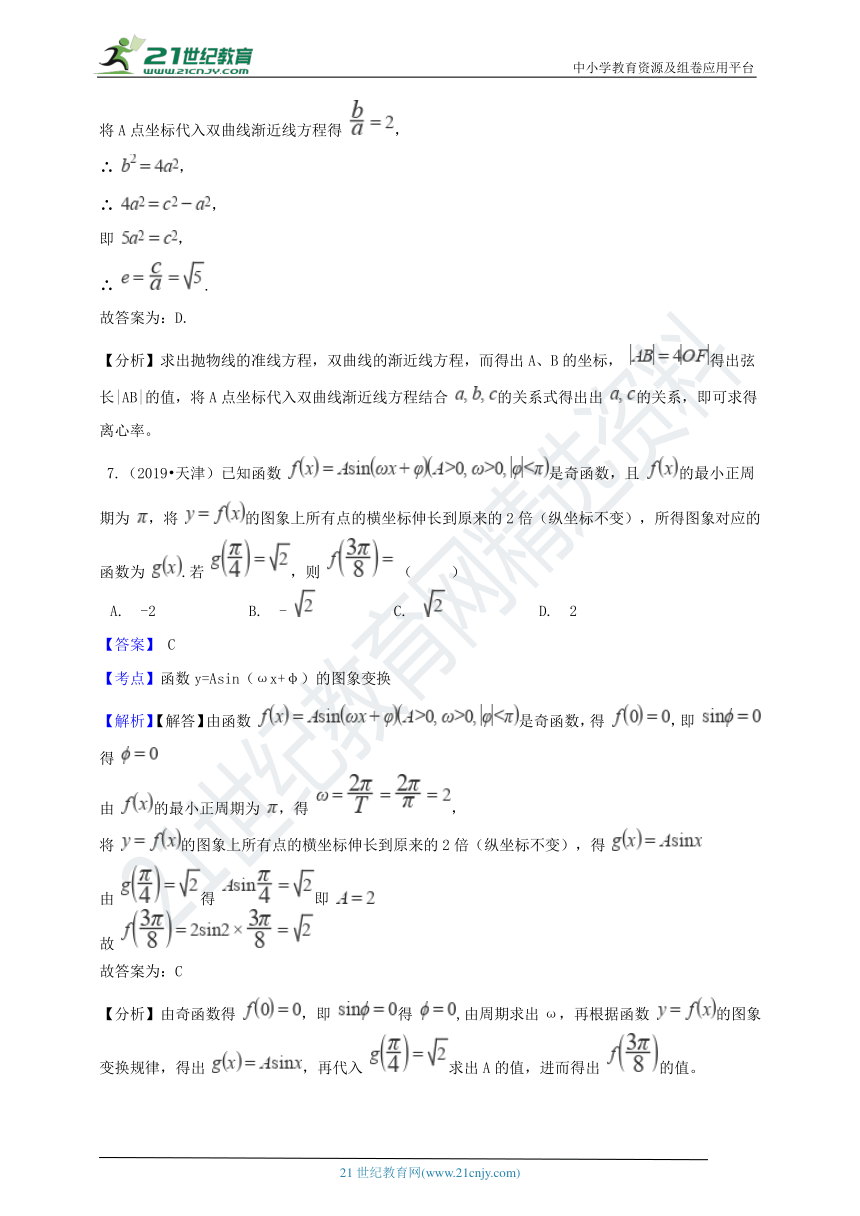 21世纪教育
WWW.21CNJY.COM
中小学教育资源及组卷应用平台
将 A 点坐标代入双曲线渐近线方程得 b/a=2,
∴ b²=4a²,
∴ 4a²=c²−a²,
即 5a²=c²,
∴ e=c/a=√5.
故答案为:D.
【分析】求出抛物线的准线方程,双曲线的渐近线方程,而得出A、B的坐标, |AB|=4|OF|得出弦
长|AB|的值,将A点坐标代入双曲线渐近线方程结合 a,b,c的关系式得出出 a,c的关系,即可求得
离心率。
7.(2019•天津)已知函数 f(x)=Asin(ωx+φ)(A>0,ω>0,|φ|<π)是奇函数,且 f(x)的最小正周
期为 π,将 y=f(x)的图象上所有点的横坐标伸长到原来的2倍(纵坐标不变),所得图象对应的
函数为 g(x).若 g(π/4)=√2,则 f(3π/8)=( )
A. -2 B. -√2 C. √2 D. 2
【答案】 C
【考点】函数y=Asin(ωx+φ)的图象变换
【解析】【解答】由函数 f(x)=Asin(ωx+φ)(A>0,ω>0,|φ|<π)是奇函数,得 f(0)=0,即 sinϕ=0
得 ϕ=0
由 f(x)的最小正周期为 π,得 ω=2π/T=2π/π=2,
将 y=f(x)的图象上所有点的横坐标伸长到原来的2倍(纵坐标不变),得 g(x)=Asinx
由 g(π/4)=√2得 Asinπ/4=√2即 A=2
故 f(3π/8)=2sin2×3π/8=√2
故答案为:C
【分析】由奇函数得 f(0)=0,即 sinϕ=0得 ϕ=0,由周期求出ω,再根据函数 y=f(x)的图象
变换规律,得出 g(x)=Asinx,再代入 g(π/4)=√2求出A的值,进而得出 f(3π/8)的值。
21世纪教育网精选资料
21 世纪教育网(www.21cnjy.com)